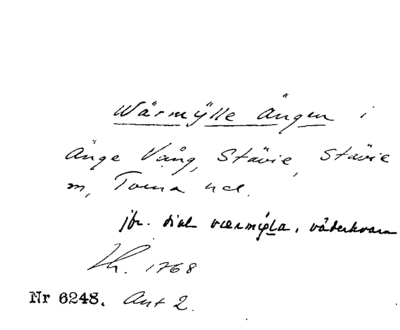 Wärmÿlle Ängen i
Änge Vång, Stävie, Stävie
sn, Torna hd.
jfr. dial værmÿla, väderkvarn
Lh. 1768
Nr 6248. Ant 2.